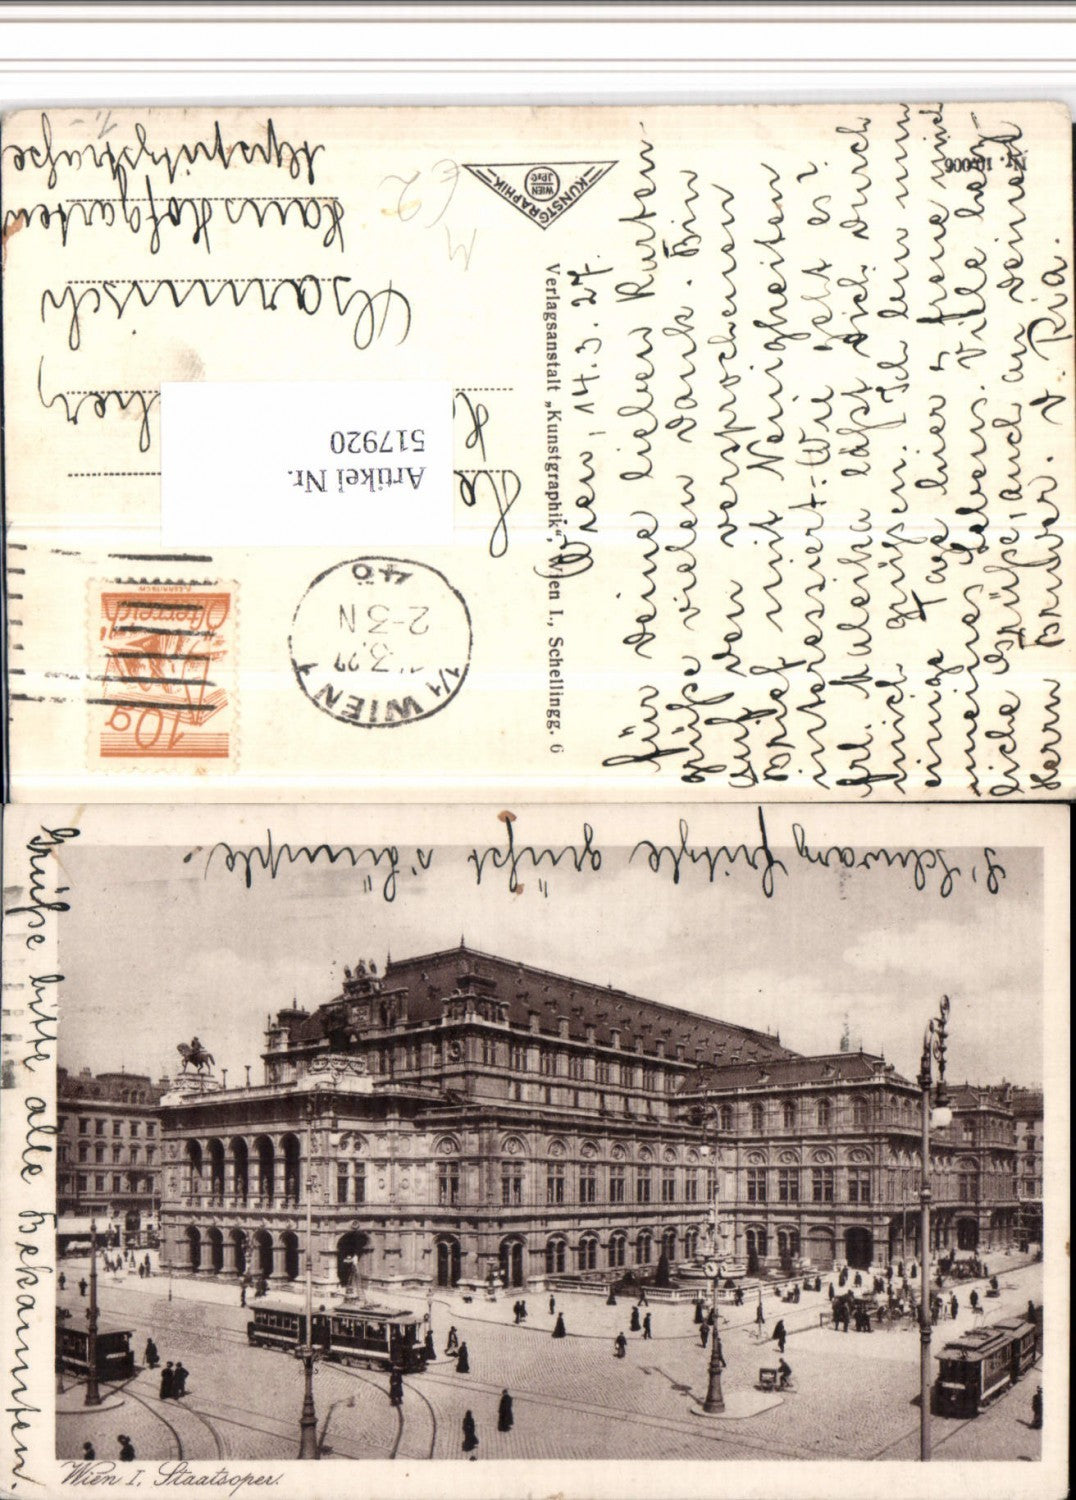 Wien, 14.3.27.
Für deine lieben Karten
grüße vielen Dank. Bin
auf den versprochenen
Brief mit Neuigkeiten
interessiert. Wie geht es?
Frl. Maleika läßt dich durch
mich grüßen. Ich bin nun
einige Tage hier & freue mich
meines Lebens. Viele herz-
liche Grüße, auch an deinen
Herrn Bruder. d. Ria.
Nr. 10.006
Verlagsanstalt „Kunstgraphik“, Wien I., Schellingg. 6
KUNSTGRAPHIK
WIEN
10g
Österreich
1/1 WIEN 1
3.27
2-3 N
4ö
Artikel Nr.
517920
Garmisch
Haus Hofgarten
Alpspitzstraße
s'Schwarzfritzle grüßt s'Hümple.
Grüße bitte alle Bekannten.
Wien I. Staatsoper.